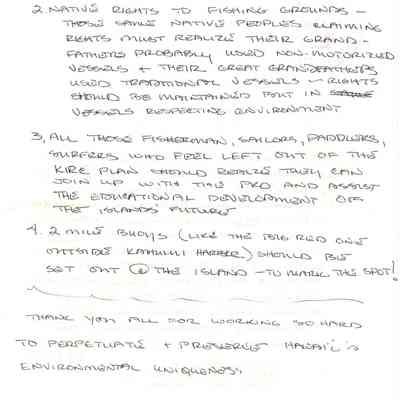 2. NATIVE RIGHTS TO FISHING GROUNDS -
THOSE SAME NATIVE PEOPLES CLAIMING
RIGHTS MUST REALIZE THEIR GRAND-
FATHERS PROBABLY USED NON-MOTORIZED
VESSELS + THEIR GREAT GRANDFATHERS
USED TRADITIONAL VESSELS - RIGHTS
SHOULD BE MAINTAINED BUT IN
VESSELS RESPECTING ENVIRONMENT
3. ALL THOSE FISHERMAN, SAILORS, PADDLERS,
SURFERS WHO FEEL LEFT OUT OF THE
KIRC PLAN SHOULD REALIZE THEY CAN
JOIN UP WITH THE PKO AND ASSIST
THE EDUCATIONAL DEVELOPMENT OF
THE ISLANDS' FUTURE
4. 2 MILE BUOYS (LIKE THE BIG RED ONE
OUTSIDE KAHULUI HARBOR) SHOULD BE
SET OUT @ THE ISLAND - TO MARK THE SPOT!
THANK YOU ALL FOR WORKING SO HARD
TO PERPETUATE + PRESERVE HAWAI'I'S
ENVIRONMENTAL UNIQUENESS.